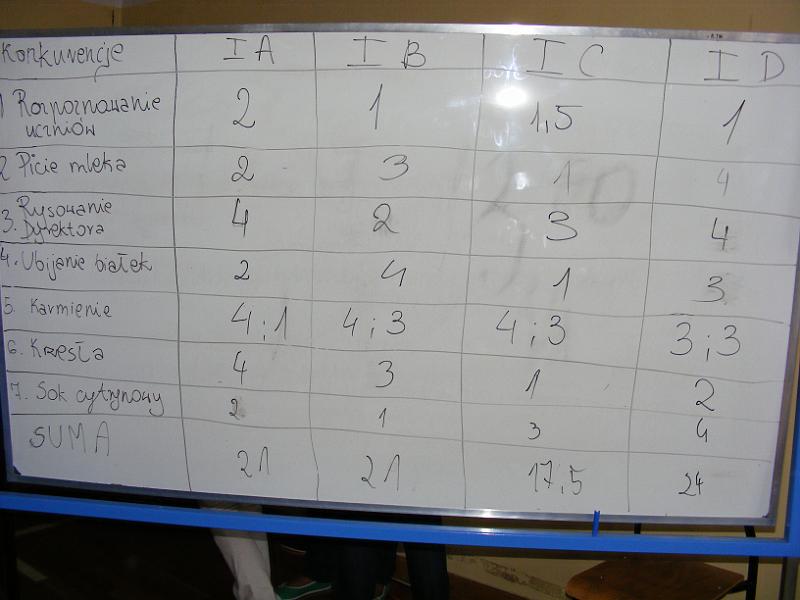 Konkurencje IA IB IC ID
1 Rozpoznawanie
uczniów 2 1 1,5 1
2 Picie mleka 2 3 1 4
3. Rysowanie
Dyrektora 4 2 3 4
4. Ubijanie białek 2 4 1 3
5. Karmienie 4;1 4;3 4;3 3;3
6. Krzesła 4 3 1 2
7. Sok cytrynowy 2 1 3 4
SUMA 21 21 17,5 24